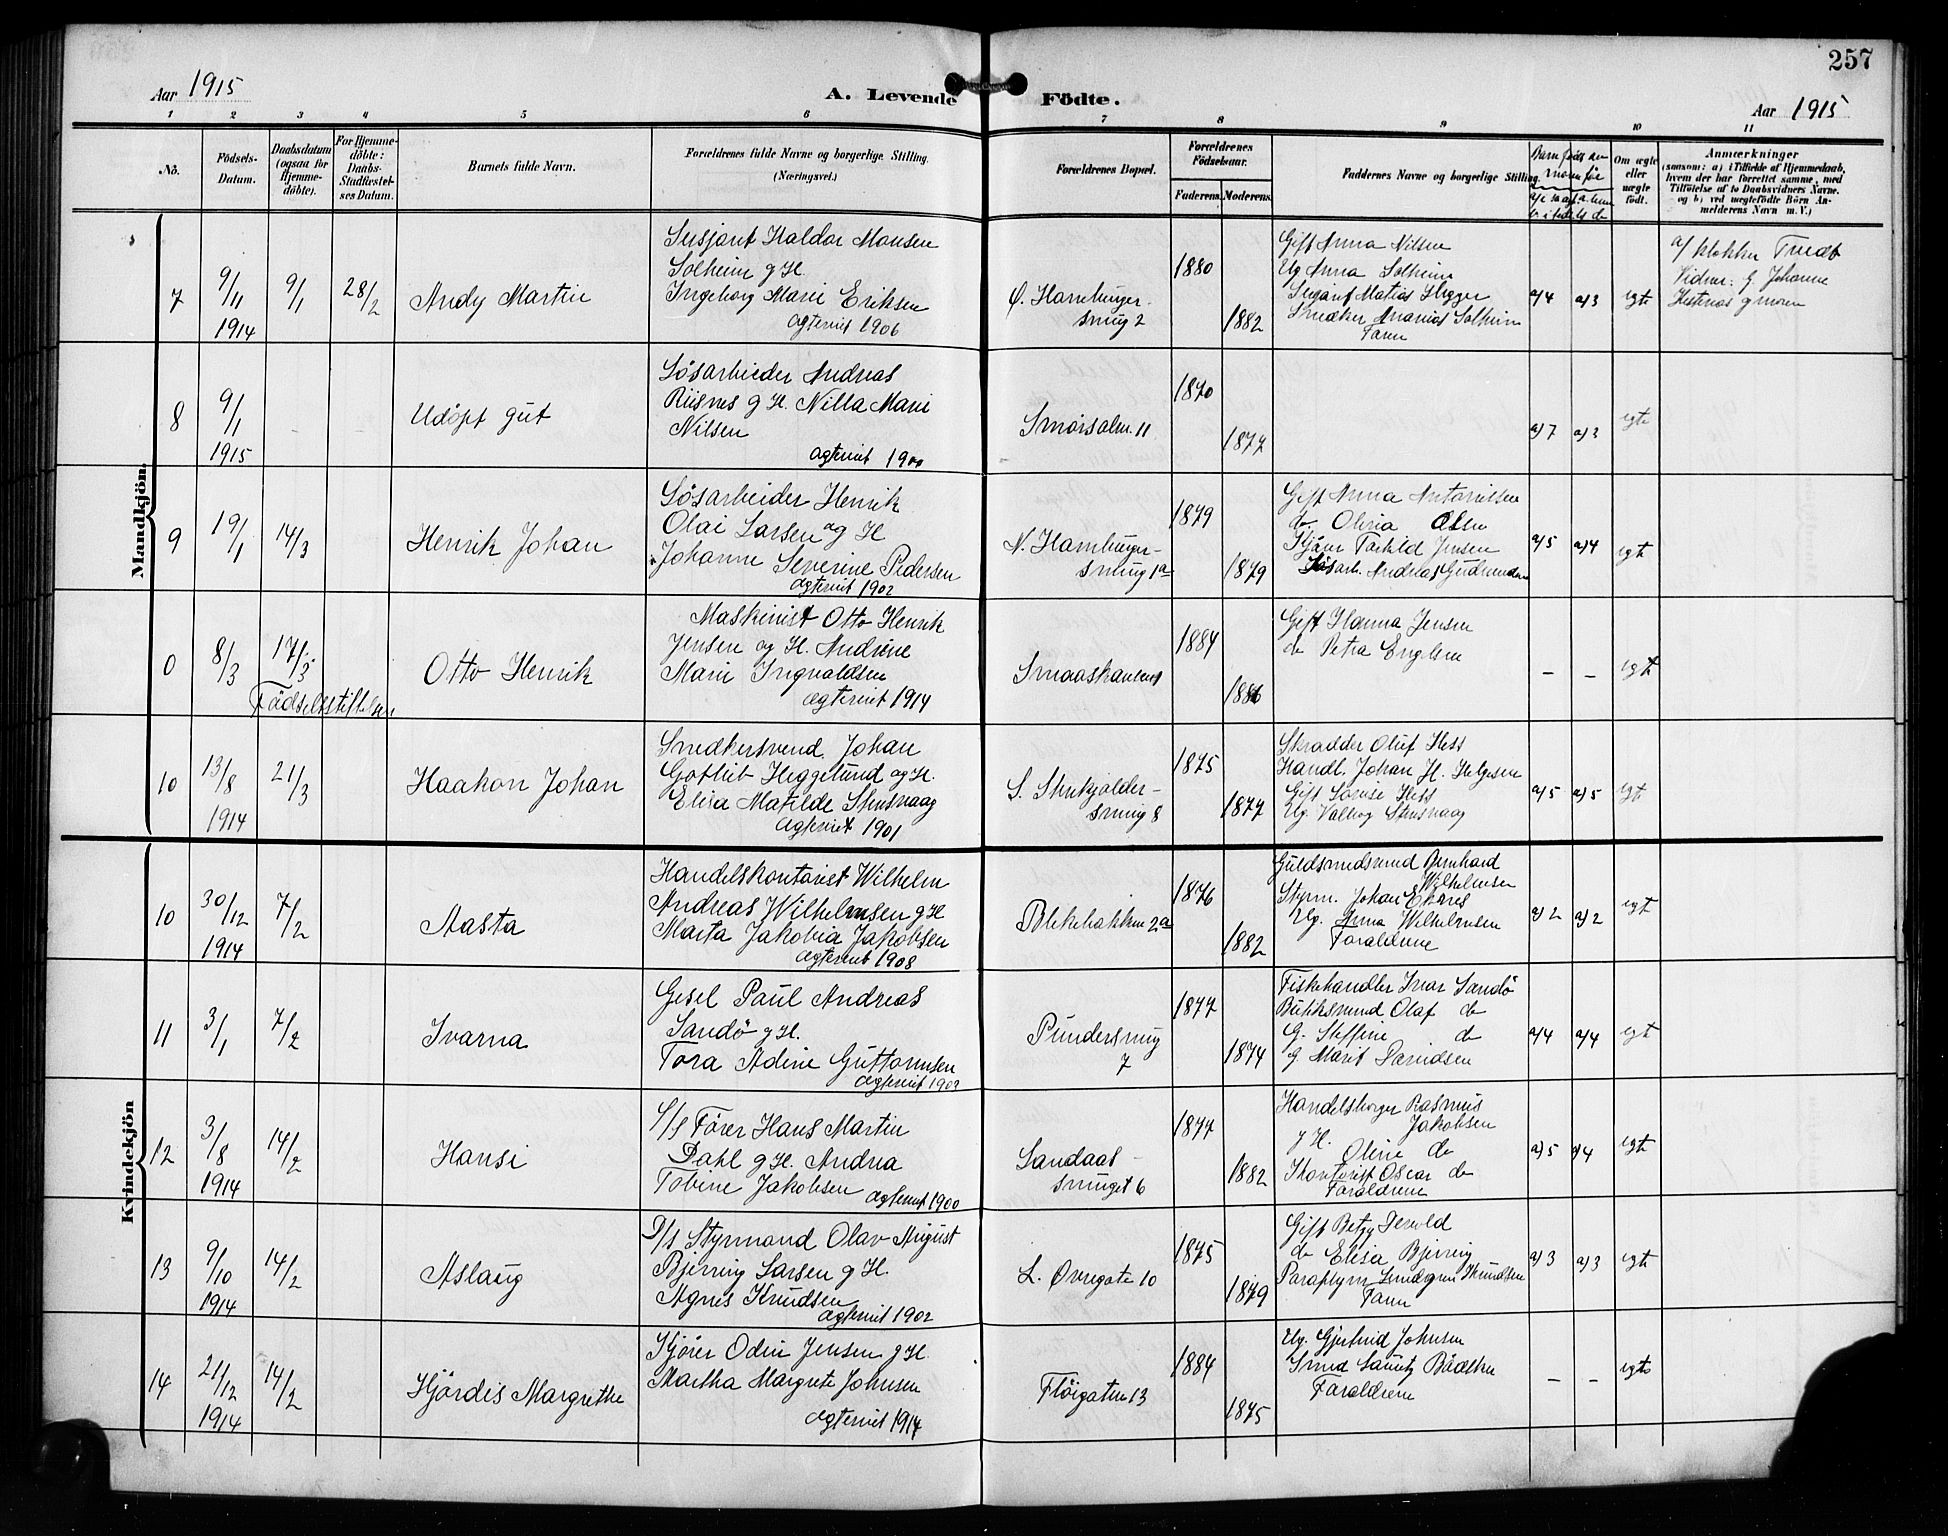 257
Aar 1915
A. Levende Födte.
Aar 1915
1 2 3 4 5 6 7 8 9 10 11
No.
Födsels-
Datum.
Daabsdatum
(ogsaa for
Hjemme-
döbte).
For Hjemme-
döbte:
Daabs-
Stadfæstel-
ses Datum.
Barnets fulde Navn.
Forældrenes fulde Navne og borgerlige Stilling.
(Næringsvei.)
Forældrenes Bopæl.
Forældrenes
Födselsaar.
Faderens. Moderens.
Faddernes Navne og borgerlige Stilling.
Om ægte
eller
uægte
födt.
Anmærkninger
(saasom: a) i Tilfælde af Hjemmedaab,
hvem der har forrettet samme, med
Tilföielse af to Daabsvidners Navne.
og b) ved uægtefödte Börn An-
melderens Navn m. V.)
Mandkjön.
7
9/11
1914
9/1
28/2
Andy Martin
Sersjant Haldor Monsen
Solheim g H.
Ingeborg Marie Eriksen
ægteviet 1906
Ø. Hamburger-
smug 2
1880
1882
Gift Anna Nilsen
Ug Anna Solheim
Sersjant Matias
Snedker Ananias Solheim
Faren
a/4 a/3
egte
a/ klokker Tvedt
Vidner: G. Johanne
Hestnes g moren
8
9/1
1915
- -
Udöpt gut
Løsarbeider Andreas
Risnes g H. Nilla Marie
Nilsen
ægteviet 1900
Smørsalm. 11
1870
1877
a/7 a/3
egte
9
19/1
14/3
Henrik Johan
Løsarbeider Henrik
Olai Larsen og H
Johanne Severine Pedersen
ægteviet 1902
N. Hamburger-
smug 1a
1879
1879
Gift Anna Antonisen
do Olivia Olsen
Torkild Jensen
Løsarb. Andreas Gudmundsen
a/5 a/4
egte
0
8/3
17/3
Födselsstiftelsen
Otto Henrik
Maskinist Otto Henrik
Jensen og H. Andrine
Marie Ingvaldsen
ægteviet 1914
1884
1886
Gift Hanna Jensen
do Petra Engelsen
- -
egte
10
13/8
1914
21/3
Haakon Johan
Snedkersvend Johan
Gotlieb Heggelund og H.
Elisa Matilde Stensvaag
ægteviet 1901
S. Skukjolder-
smug 8
1875
1877
Skrædder Oluf Hess
Handl. Johan H. Helgesen
Gift Lovise Hess
Ug. Valborg Stensvaag
a/5 a/5
egte
Kvindekjön
10
30/12
1914
7/2
Aasta
Handelskontorist Wilhelm
Andreas Wilhelmsen g H
Marta Jakobia Jakobsen
ægteviet 1908
Blekebakken 2a
1876
1882
Guldsmedsvend Bernhard
Wilhelmsen
Styrm. Johan
Ug. Anna Wilhelmsen
Forældrene
a/2 a/2
egte
11
3/1
7/2
Ivarna
Gesel Paul Andreas
Sandö g H.
Tora Adine Guttormsen
ægteviet 1902
Pundersmug
7
1877
1874
Fiskehandler Ivar Sandö
Butiksvend Olaf do
G. Steffine do
g Marit Davidsen
a/4 a/4
egte
12
3/8
1914
14/2
Hansi
S/s Fører Hans Martin
Dahl g H. Andrea
Tobine Jakobsen ægteviet 1900
Sandaas-
smuget 6
1877
1882
Handelsborger Rasmus
Jakobsen
g H. Oline do
Kontorist Oscar do
Forældrene
a/5 a/4
egte
13
9/10
1914
14/2
Aslaug
D/s Styrmand Olav August
Bjerring Larsen g H.
Agnes Knudsen
ægteviet 1902
L. Øvregate 10
1875
1879
Gift Betzy Jervold
do Elisa Bjerring
Paraplym Knudsen
Faren
a/3 a/3
egte
14
21/12
1914
14/2
Hjördis Margrethe
Kjører Odin Jensen g H.
Martha Margrete Johnsen
ægteviet 1914
Fløigaten 13
1884
1875
Ug. Gjertrud Johnsen
Smed Lauritz Bödtker
Forældrene
- -
egte